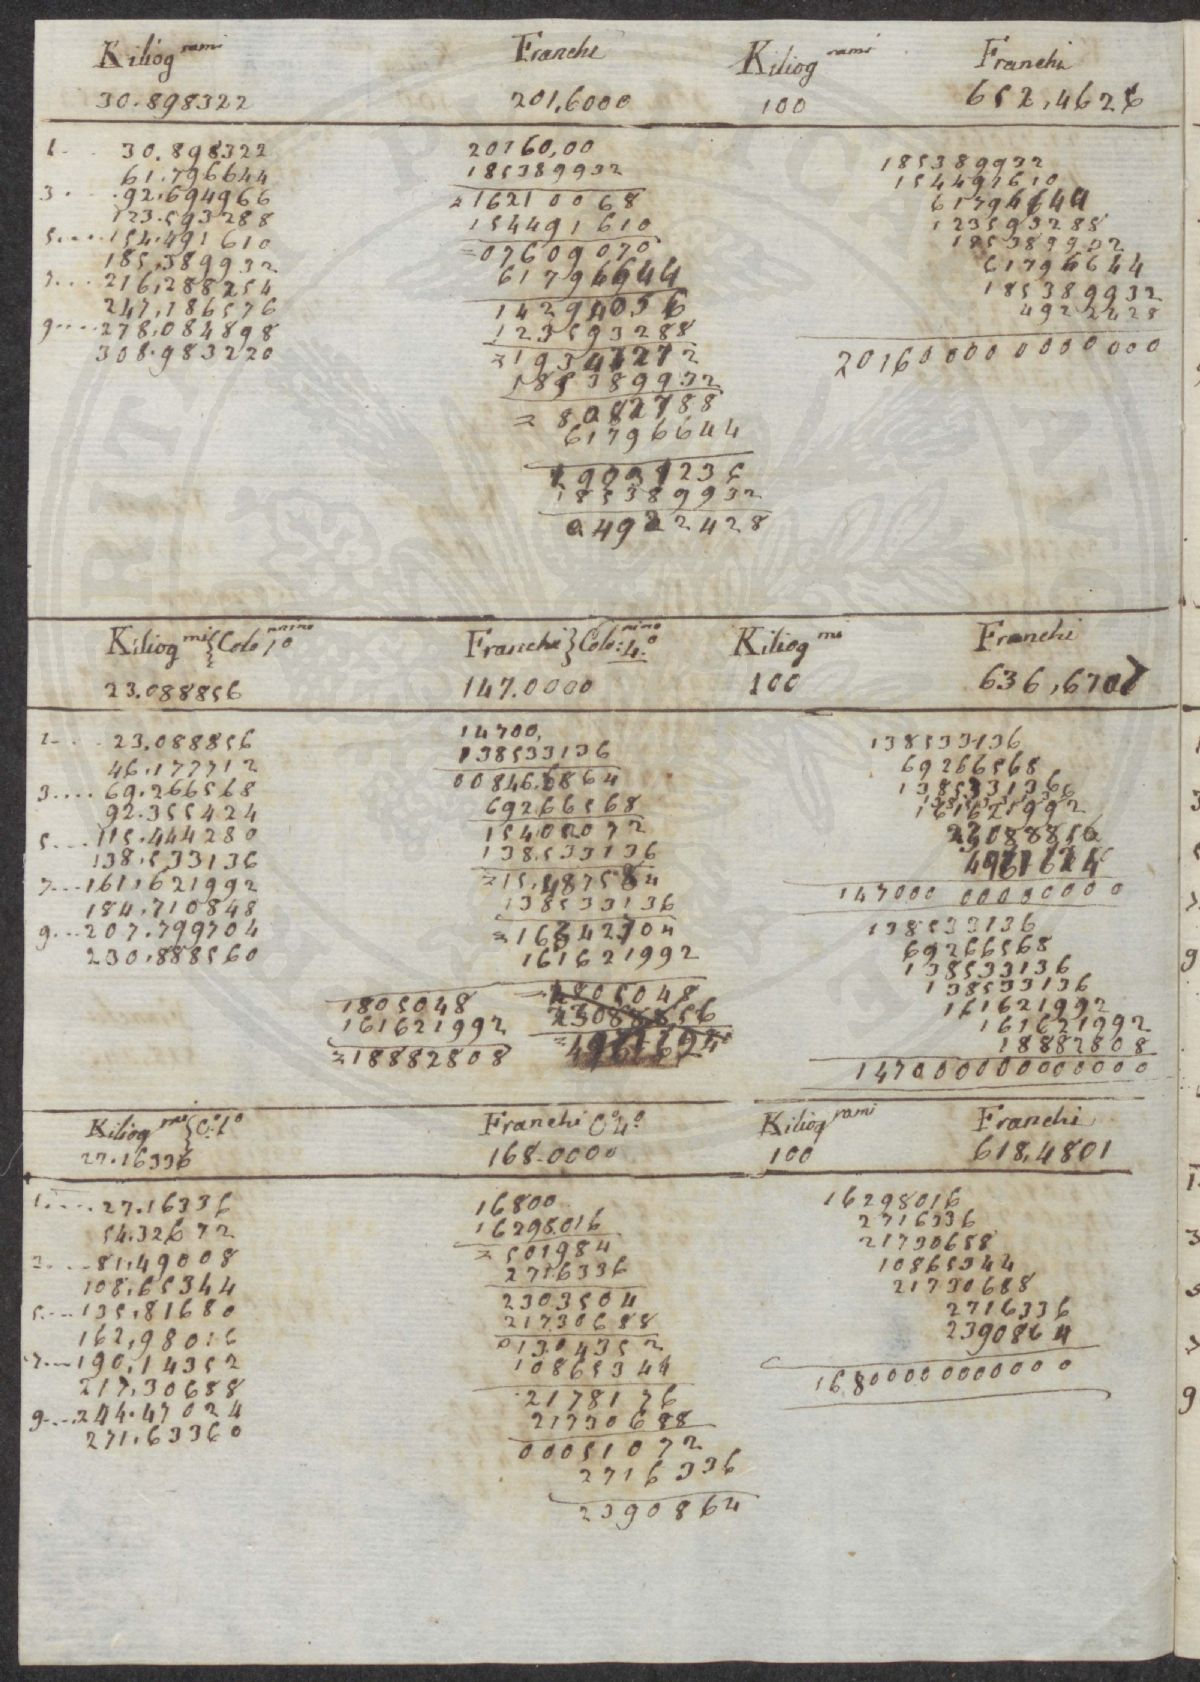 Kiliog rami Franchi Kiliog rami Franchi
30.898322 201,6000 100 652,4626
1.. 30.898322
61.796644
3... 92.694966
123.593288
5.... 154.491610
185,389932
7... 216,288254
247,186576
9.... 278,084898
308.983220
20160,00
185389932
=16210068
154491610
=07609070
61796644
14294056
123593288
=19347272
185389932
=8082788
61796644
19031236
185389932
04922428
185389932
154491610
61796644
123593288
185389932
61796644
185389932
4922428
20160000000000
Kiliog mi} Colo 1º Franchi} Colo: 4.º Kiliog mi Franchi
23.088856 147.0000 100 636,670
1.... 23.088856
46.177712
3.... 69.266568
92.355424
5.... 115.444280
138,533136
7.... 161,621992
184,710848
9... 207.799704
230,888560
14700,
138533136
00846.6864
69266568
15402072
138533136
=15,487584
138533136
=16342704
161621992
=1805048
23088856
1805048
161621992
=18882808
138533136
69266568
138533136
161621992
23088856
147000 00000000
138533136
69266568
138533136
138533136
161621992
161621992
18882808
14700000000000
Kiliog mi} C:1º Franchi Cº4:º Kiliog rami Franchi
27.16336 168.0000 100 618,4801
1..... 27.16336
54.32672
3..... 81,49008
108,65344
5.... 135,81680
162,98016
7.... 190,14352
217,30688
9.... 244.47024
271,63360
16800
16298016
=501984
2716336
2303504
21730688
01304352
10865344
2178176
21730688
00051072
2716336
2390864
16298016
2716336
21730688
10865344
21730688
2716336
2390864
1680000000000